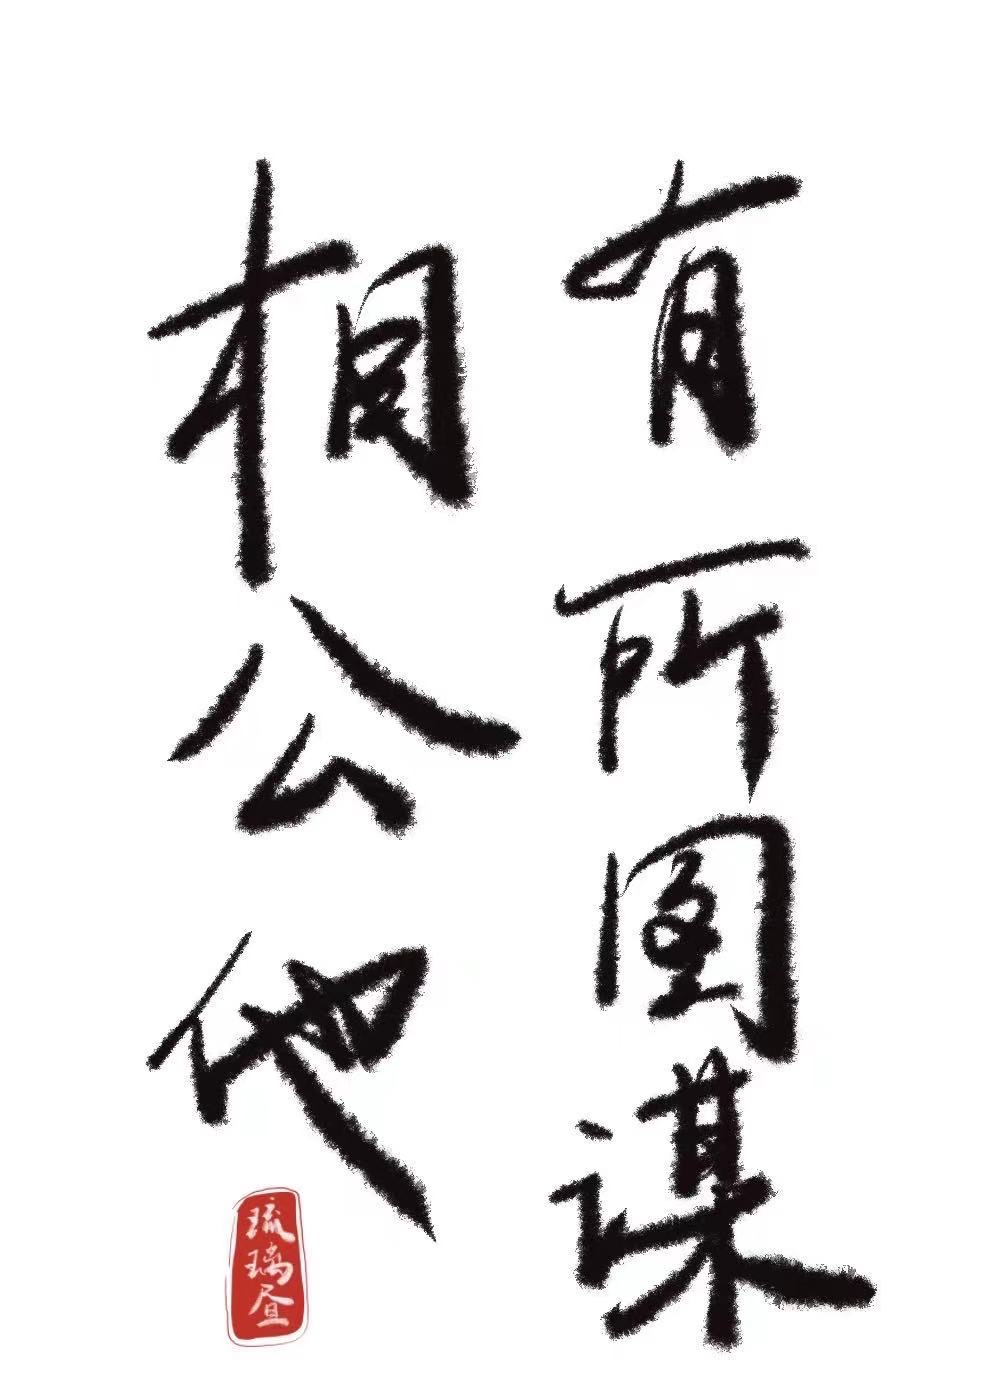 相公他
有所图谋
琉璃昼